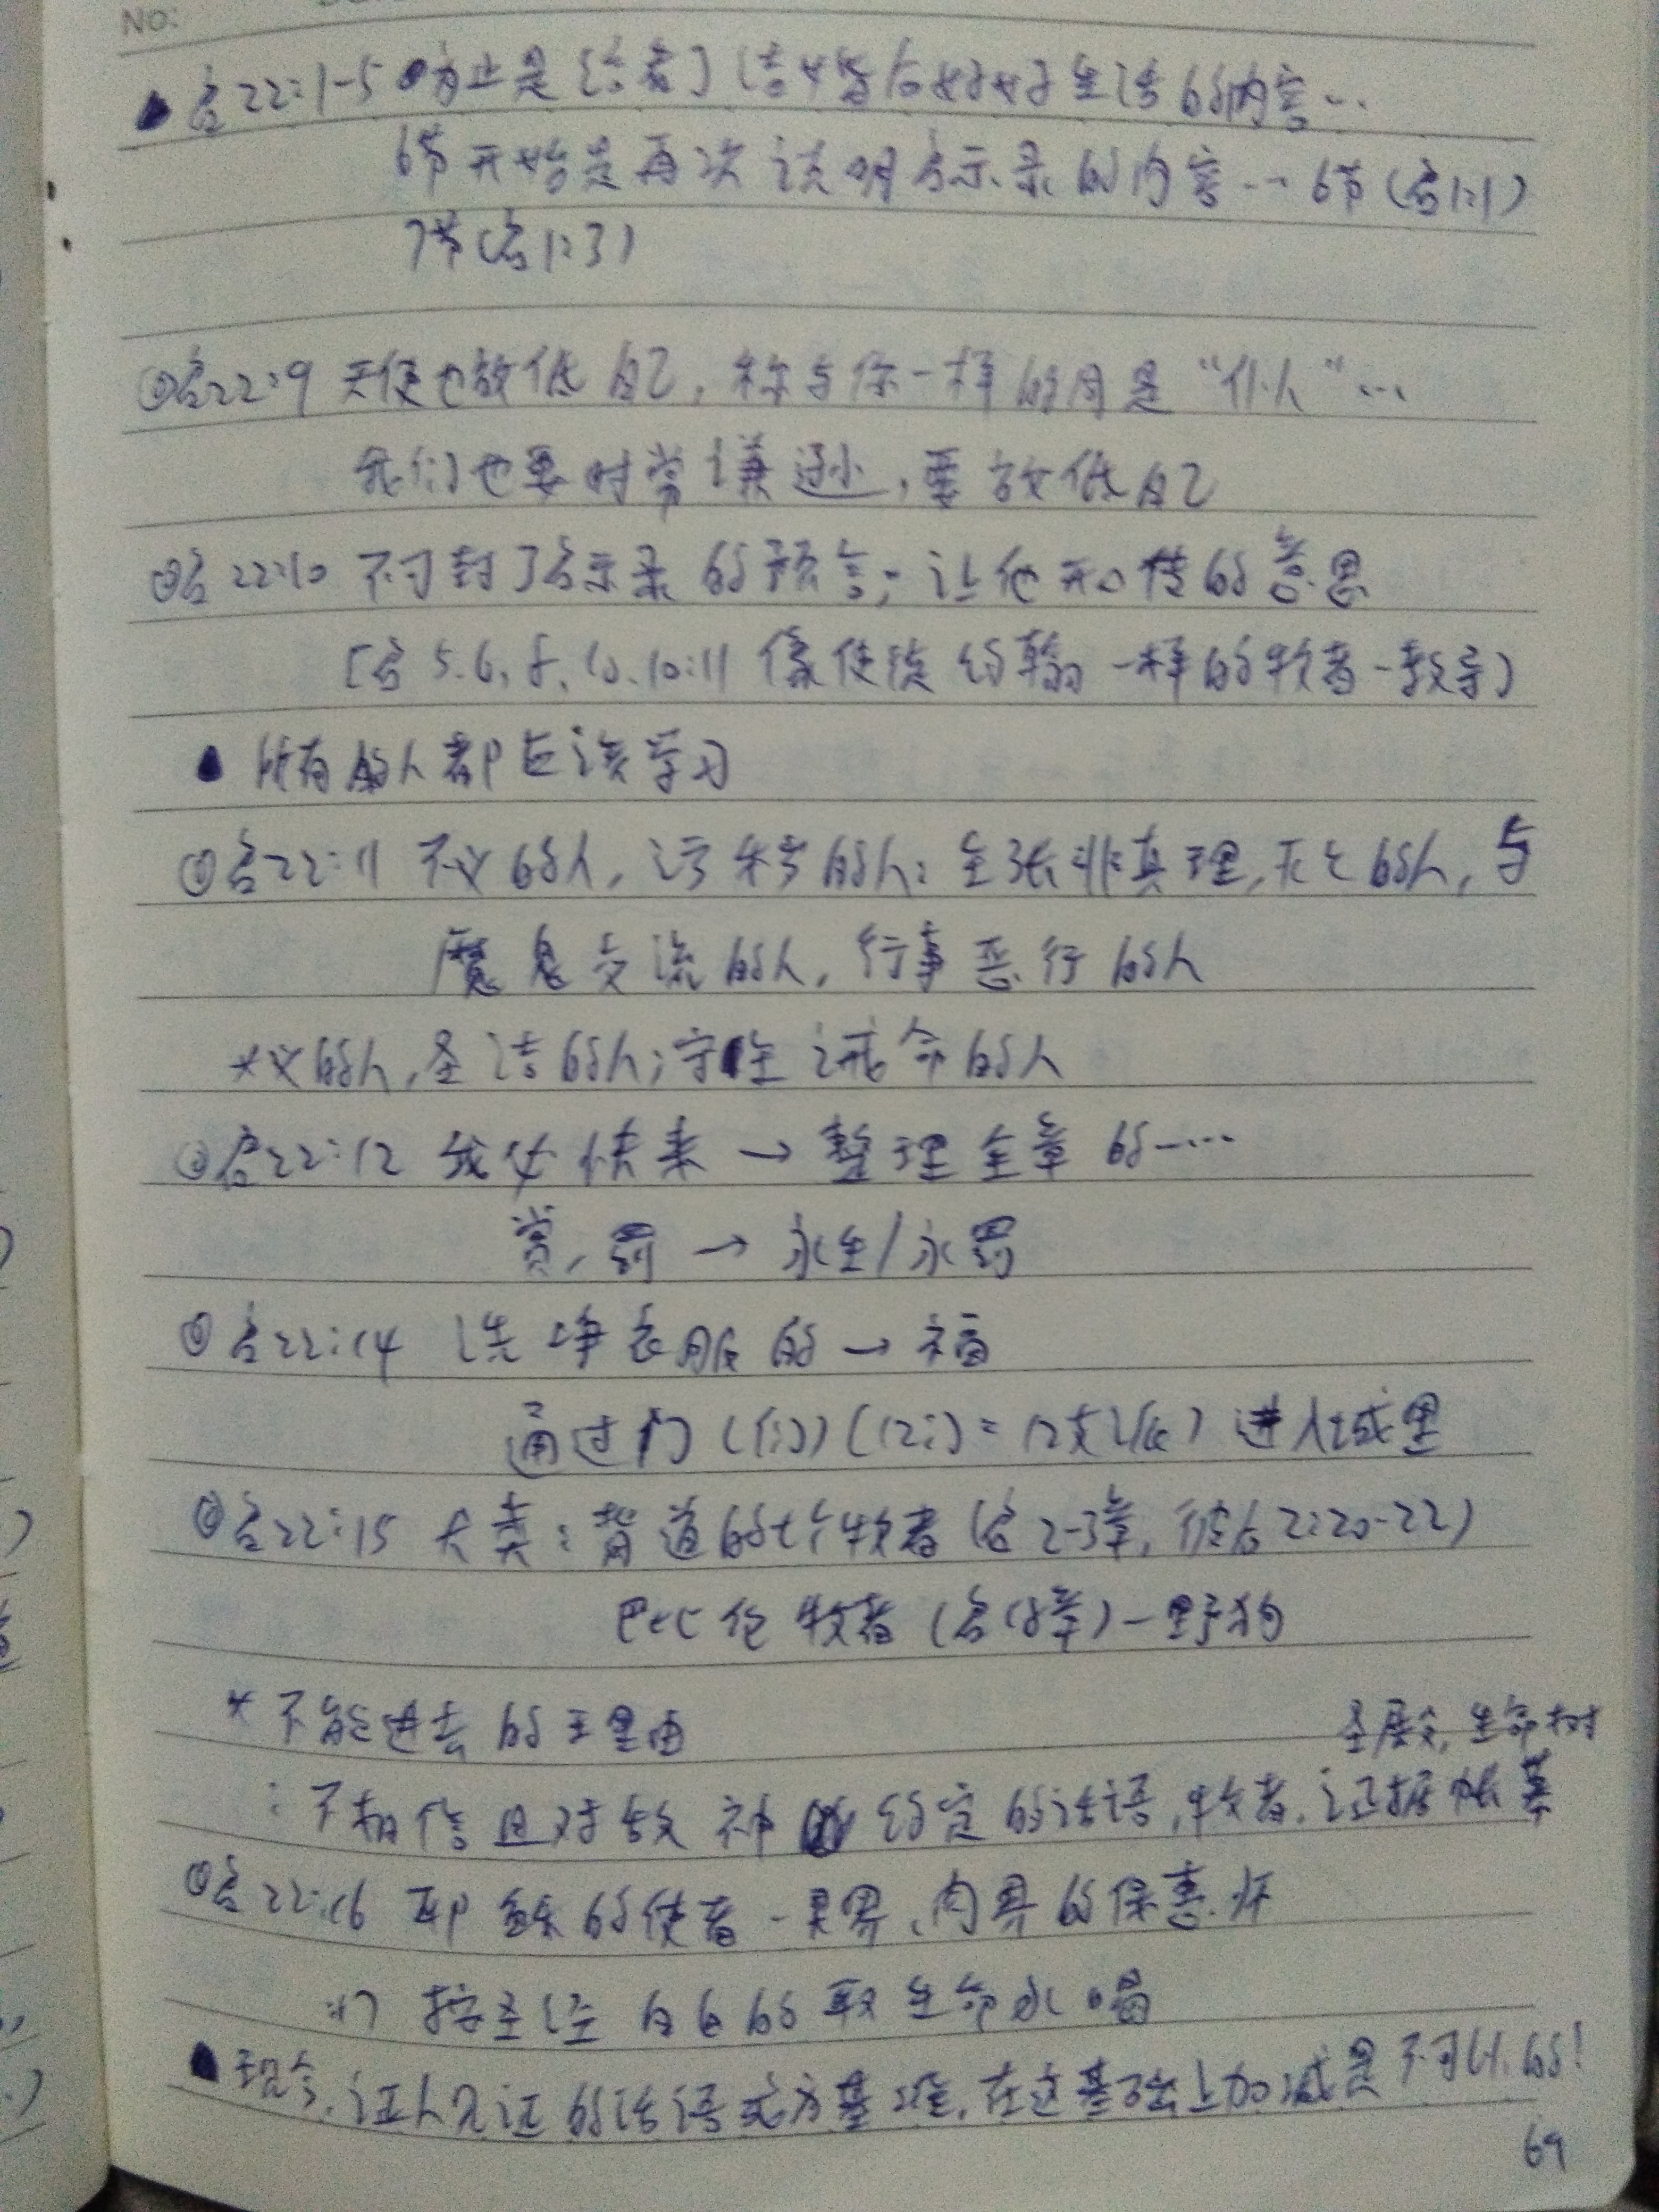 NO:
启22:1-5 为止是[结者] 结婚后好好生活的内容…
6节开始是再次说明启示录的内容… 6节(启1:1)
7节(启1:3)
①启22:9 天使也放低自己, 称与你一样的同是“仆人”…
我们也要时常谦逊, 要放低自己
②启22:10 不可封了启示录的预言; 让他开口传的意思
[启5.6.8.10.10:11 像使徒约翰一样的牧者-教导]
所有的人都应该学习
①启22:11 不义的人, 污秽的人: 主张非真理, 不义的人, 与
魔鬼交流的人, 行事恶行的人
*义的人, 圣洁的人; 守住诫命的人
②启22:12 我必快来 → 整理全章的…
赏, 罚 → 永生/永罚
启22:14 洗净衣服的 → 福
通过门 (12门=12支派) 进入城里
启22:15 犬类: 背道的七个牧者 (启2-3章, 彼后2:20-22)
巴比伦牧者 (启18章) - 野狗
*不能进去的理由
圣殿, 生命树
: 不相信且对敌神约定的话语, 牧者, 证据帐幕
①启22:16 耶稣的使者 - 灵界, 肉界的保惠师
:17 按圣经白白的取生命水喝
现今, 证人见证的话语成为基准, 在这基础上加减是不可以的!
69